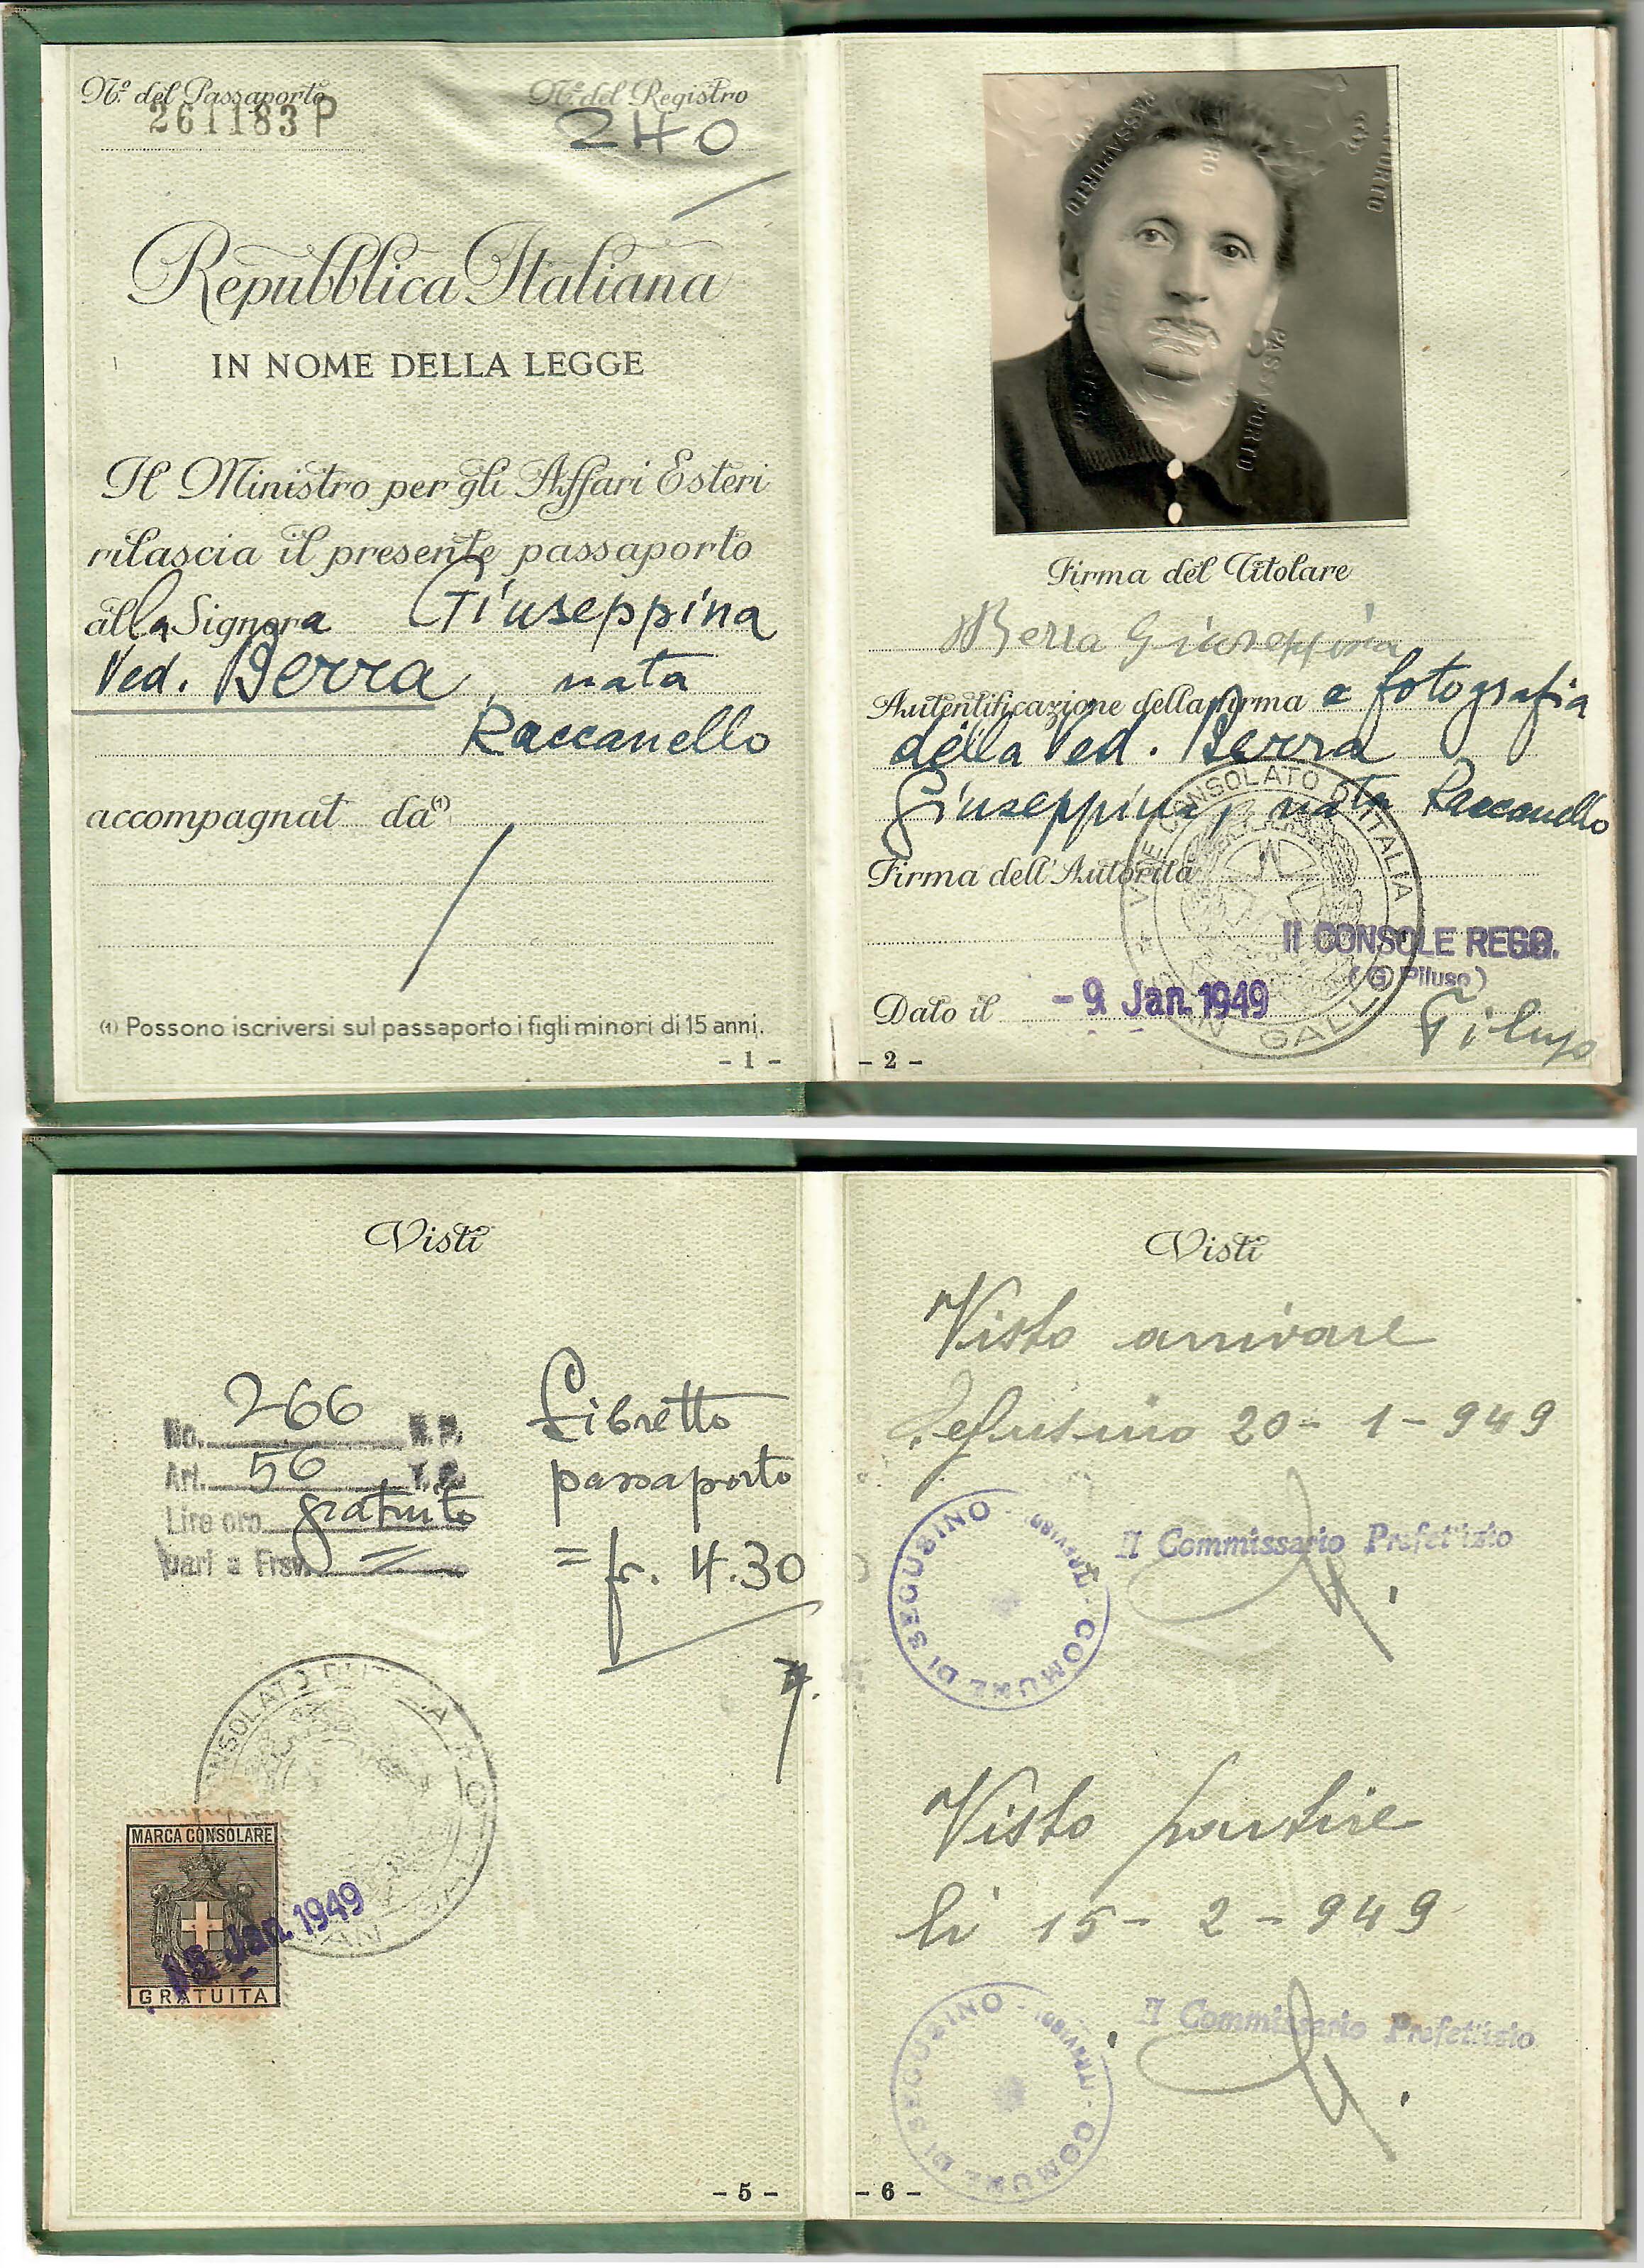 Nº del Passaporto
261183 P
Nº del Registro
240
Repubblica Italiana
IN NOME DELLA LEGGE
Il Ministro per gli Affari Esteri
rilascia il presente passaporto
alla Signora Giuseppina
Ved. Berra, nata
Raccanello
accompagnat da (1)
(1) Possono iscriversi sul passaporto i figli minori di 15 anni.
- 1 -
PASSAPORTO
PASSAPORTO
Firma del Titolare
Berra Giuseppina
Autentificazione della firma e fotografia
della Ved. Berra
Giuseppina, nata Raccanello
VICE CONSOLATO D'ITALIA
SAN GALLO
Firma dell'Autorità
Il CONSOLE REGG.
(G. Piluso)
Dato il - 9. Jan. 1949
Piluso
- 2 -
Visti
No. 266 R. P.
Art. 56 T. C.
Lire oro gratuito
pari a Frsv. =
Libretto
passaporto
= fr. 4.30
MARCA CONSOLARE
GRATUITA
Jan. 1949
- 5 -
Visti
Visto arrivare
Segusino 20 - 1 - 949
COMUNE DI SEGUSINO - (TREVISO) -
Il Commissario Prefettizio
Visto partire
li 15 - 2 - 949
COMUNE DI SEGUSINO - (TREVISO) -
Il Commissario Prefettizio
- 6 -